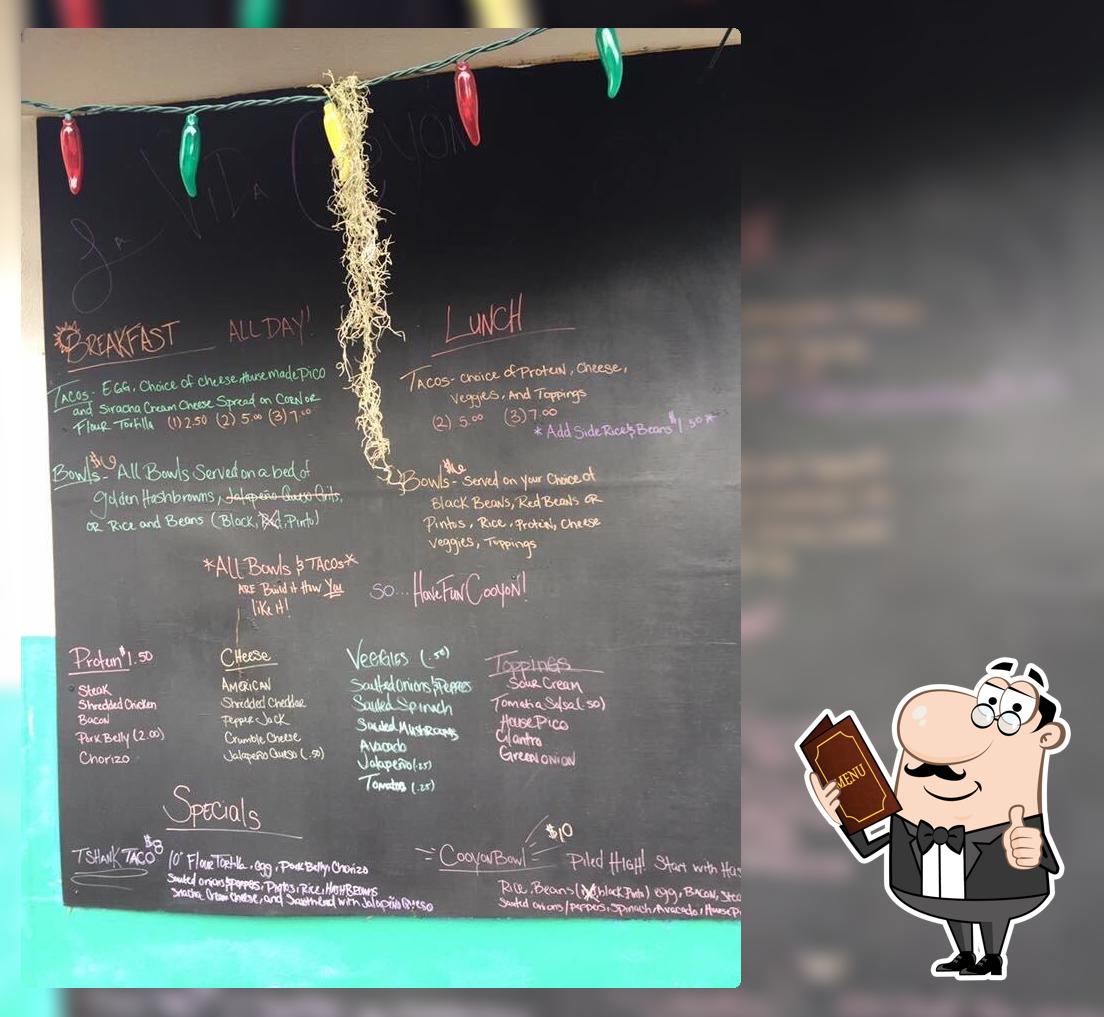 La Vida Cooyon
BREAKFAST ALL DAY!
Tacos- EGG, Choice of Cheese, Housemade Pico
and Siracha Cream Cheese Spread on CORN OR
Flour Tortilla (1) 2.50 (2) 5.00 (3) 7.00
Bowls- $6 All Bowls Served on a bed of
golden Hashbrowns, Jalapeño Queso Grits,
OR Rice and Beans (Black, Red, Pinto)
LUNCH
Tacos- Choice of Protein, Cheese,
Veggies, And Toppings
(2) 5.00 (3) 7.00
*Add Side Rice & Beans $1.50*
Bowls- $6 Served on your Choice of
Black Beans, Red Beans OR
Pintos, Rice, Protein, Cheese
Veggies, Toppings
*All Bowls & TACOS*
ARE Build it How You
like it!
SO... Have Fun Cooyon!
Protein $1.50
Steak
Shredded Chicken
Bacon
Pork Belly (2.00)
Chorizo
CHeese
AMERICAN
Shredded Cheddar
Pepper Jack
Crumble Cheese
Jalapeño Queso (.50)
Veggies (.50)
Sauted Onions & Peppers
Sauted Spinach
Sauted Mushrooms
Avacado
Jalapeño (.25)
Tomatoes (.25)
Toppings
Sour Cream
Tomatia Salsa (.50)
House Pico
Cilantro
Green Onion
SPECIALS
TSHANK TACO $8 10" Flour Tortilla, egg, Pork Belly, Chorizo
Sauted onions & peppers, Pintos, Rice, HASHBROWNS
Siracha Cream Cheese, and Smothered with Jalapeño Queso
Cooyon Bowl $10 Piled HIGH! Start with Has
Rice, Beans (Black, Pinto) egg, BACON, Stea
Sauted onions/peppers, Spinach, Avacado, House P
MENU